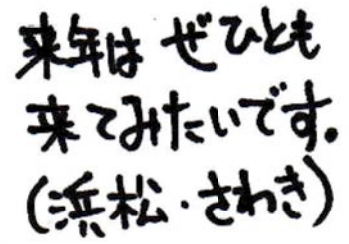 来年は ぜひとも
来てみたいです。
(浜松・さわき)